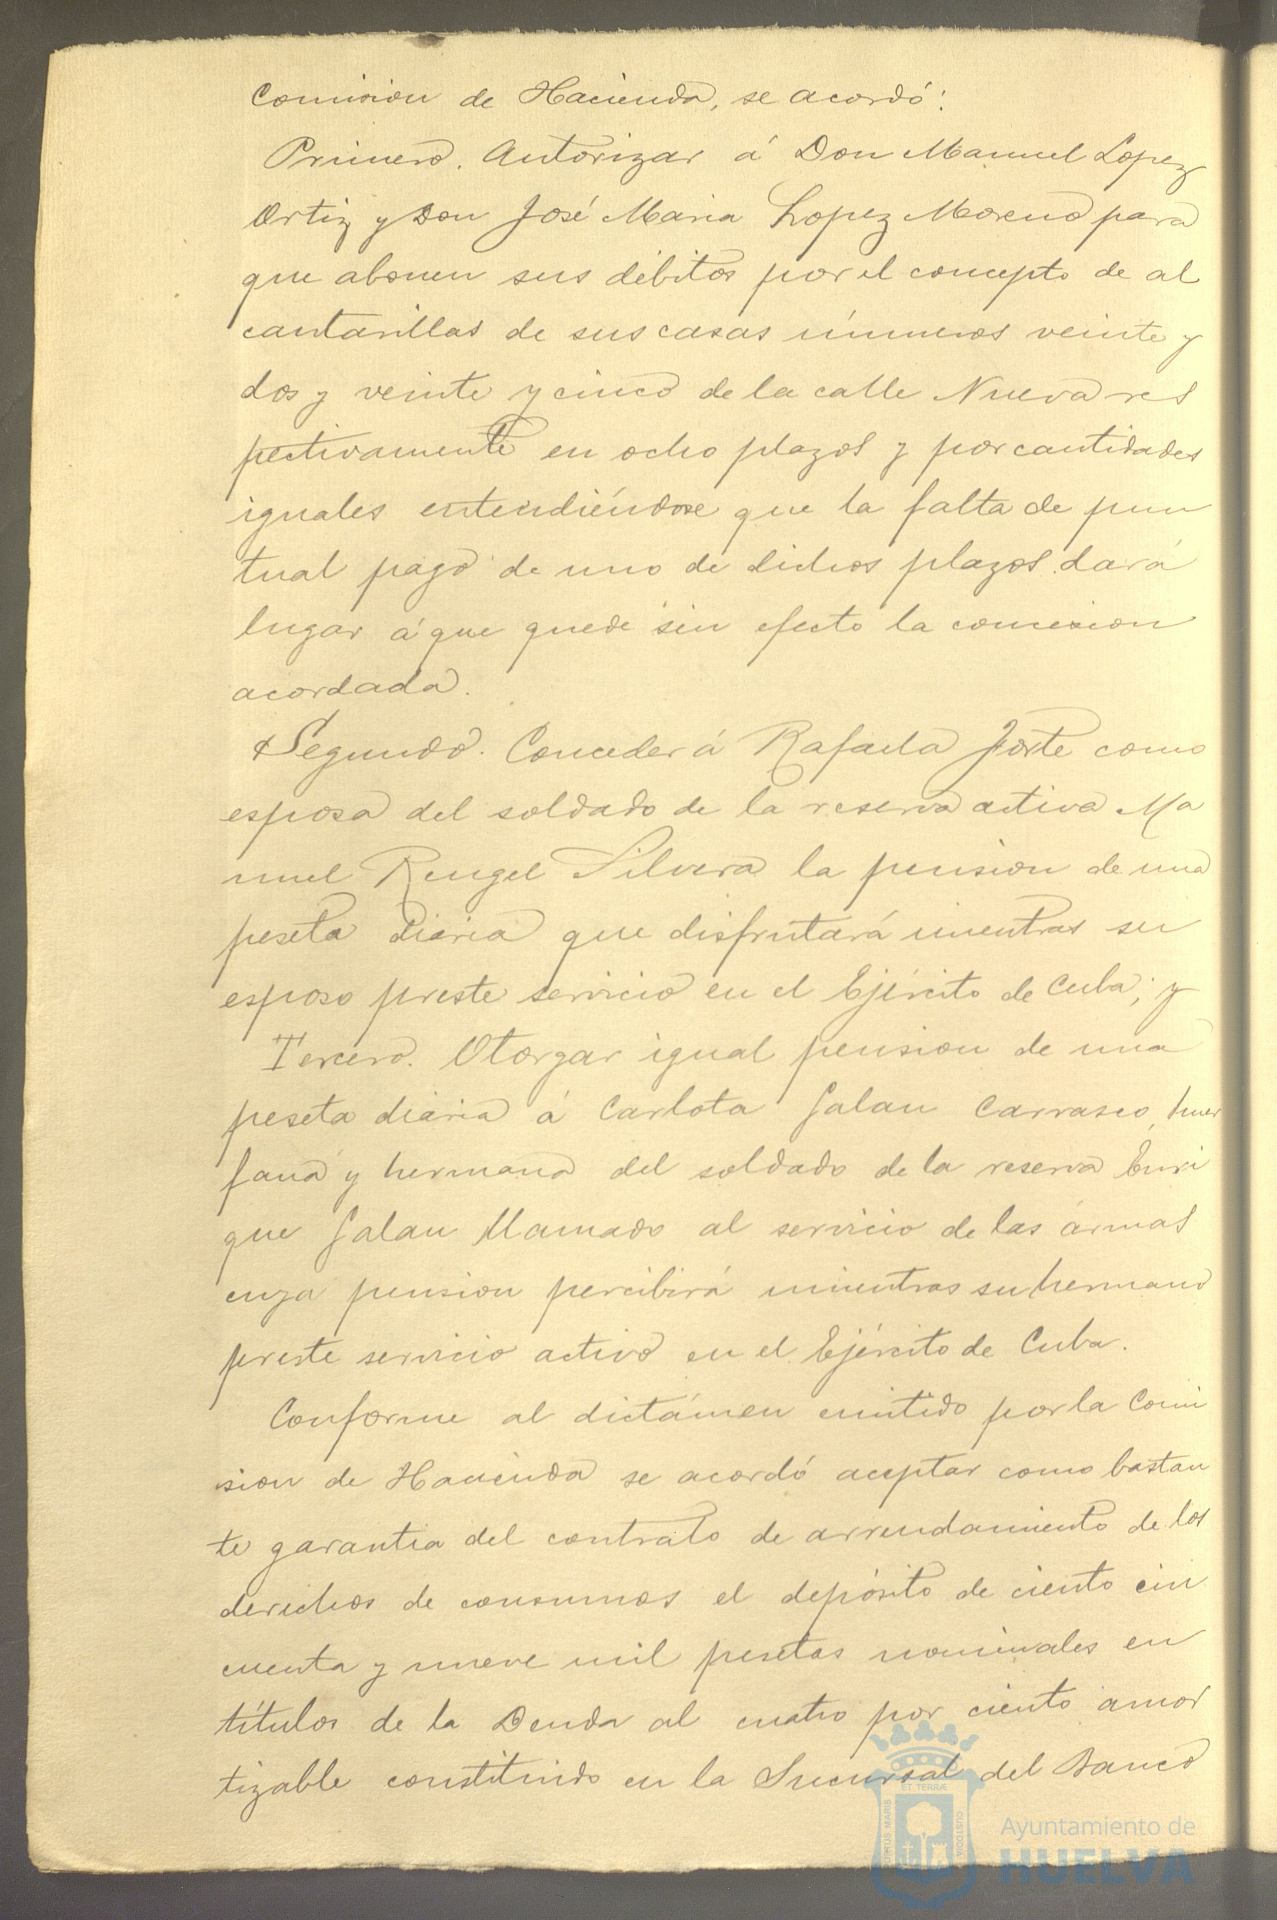 Comision de Hacienda, se acordó:
Primero. Autorizar á Don Manuel Lopez
Ortiz y Don José Maria Lopez Moreno para
que abonen sus débitos por el concepto de al
cantarillas de sus casas números veinte y
dos y veinte y cinco de la calle Nueva res
pectivamente en ocho plazos y por cantidades
iguales entendiéndose que la falta de pun
tual pago de uno de dichos plazos dará
lugar á que quede sin efecto la concesion
acordada.
Segundo. Conceder á Rafaela Forte como
esposa del soldado de la reserva activa Ma
nuel Rengel Silvera la pension de una
peseta diaria que disfrutará mientras su
esposo preste servicio en el Ejército de Cuba; y
Tercero. Otorgar igual pension de una
peseta diaria á Carlota Galan Carrasco, huer
fana y hermana del soldado de la reserva Enri
que Galan llamado al servicio de las armas
cuya pension percibirá mientras su hermano
preste servicio activo en el Ejército de Cuba.
Conforme al dictámen emitido por la Comi
sion de Hacienda se acordó aceptar como bastan
te garantia del contrato de arrendamiento de los
derechos de consumos el depósito de ciento cin
cuenta y nueve mil pesetas nominales en
títulos de la Deuda al cuatro por ciento amor
tizable constituido en la Sucursal del Banco
PORTUS MARIS ET TERRÆ CUSTODIA
Ayuntamiento de
HUELVA